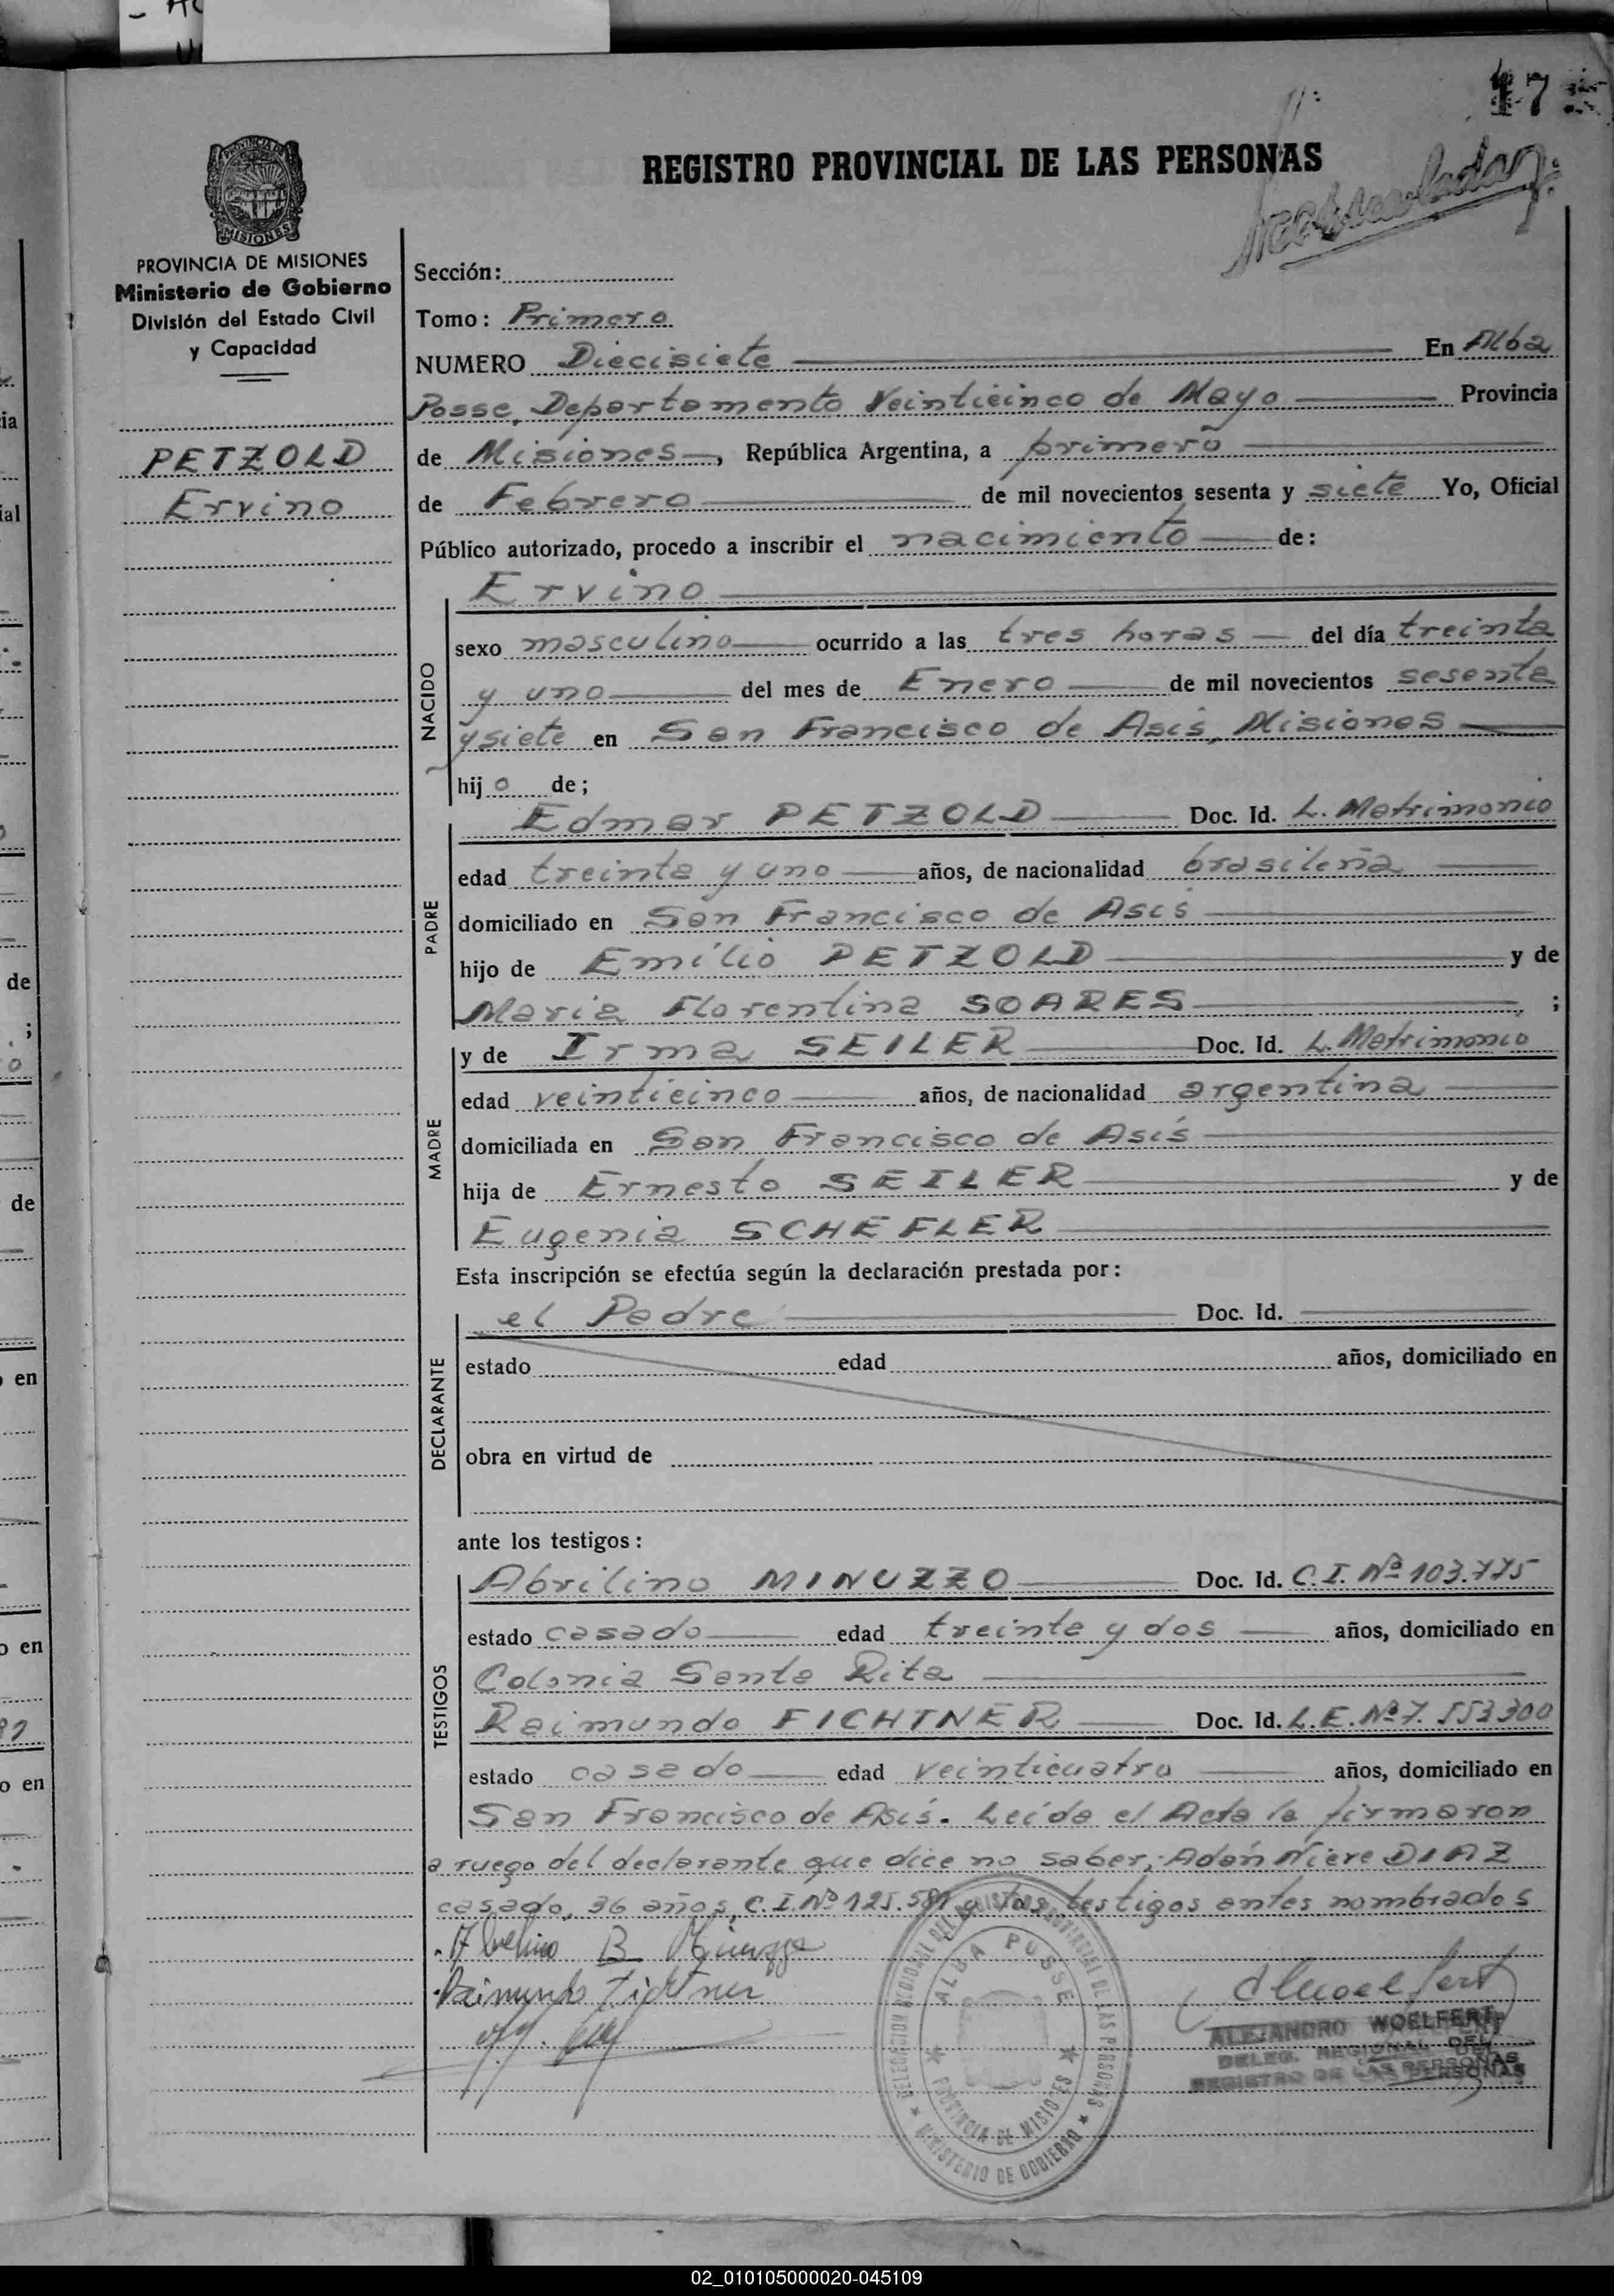 17
REGISTRO PROVINCIAL DE LAS PERSONAS
PROVINCIA DE MISIONES
Ministerio de Gobierno
División del Estado Civil
y Capacidad
PETZOLD
Ervino
Sección:
Tomo: Primero
NUMERO Diecisiete En Alba
Posse, Departamento Veinticinco de Mayo Provincia
de Misiones, República Argentina, a primero
de Febrero de mil novecientos sesenta y siete Yo, Oficial
Público autorizado, procedo a inscribir el nacimiento de:
Ervino
NACIDO
sexo masculino ocurrido a las tres horas del día treinta
y uno del mes de Enero de mil novecientos sesenta
y siete en San Francisco de Asís, Misiones
hijo de;
PADRE
Edmar PETZOLD Doc. Id. L. Matrimonio
edad treinta y uno años, de nacionalidad brasileña
domiciliado en San Francisco de Asís
hijo de Emilio PETZOLD y de
Maria Florentina SOARES ;
MADRE
y de Irma SEILER Doc. Id. L. Matrimonio
edad veinticinco años, de nacionalidad argentina
domiciliada en San Francisco de Asís
hija de Ernesto SEILER y de
Eugenia SCHEFLER
Esta inscripción se efectúa según la declaración prestada por:
DECLARANTE
el Padre Doc. Id.
estado edad años, domiciliado en
obra en virtud de
ante los testigos:
TESTIGOS
Abrilino MINUZZO Doc. Id. C.I. Nº 103.775
estado casado edad treinta y dos años, domiciliado en
Colonia Santa Rita
Raimundo FICHTNER Doc. Id. L.E. Nº 7.553.300
estado casado edad veinticuatro años, domiciliado en
San Francisco de Asís. Leída el Acta la firmaron
a ruego del declarante que dice no saber; Adán Nieve DIAZ
casado, 36 años, C.I. Nº 125.581 y los testigos antes nombrados
Raimundo Fichtner
DELEGACION REGIONAL DEL REGISTRO PROVINCIAL DE LAS PERSONAS
ALBA POSSE
PROVINCIA DE MISIONES
MINISTERIO DE GOBIERNO
ALEJANDRO WOELFERT
DELEG. REGIONAL DEL
REGISTRO DE LAS PERSONAS
02_010105000020-045109